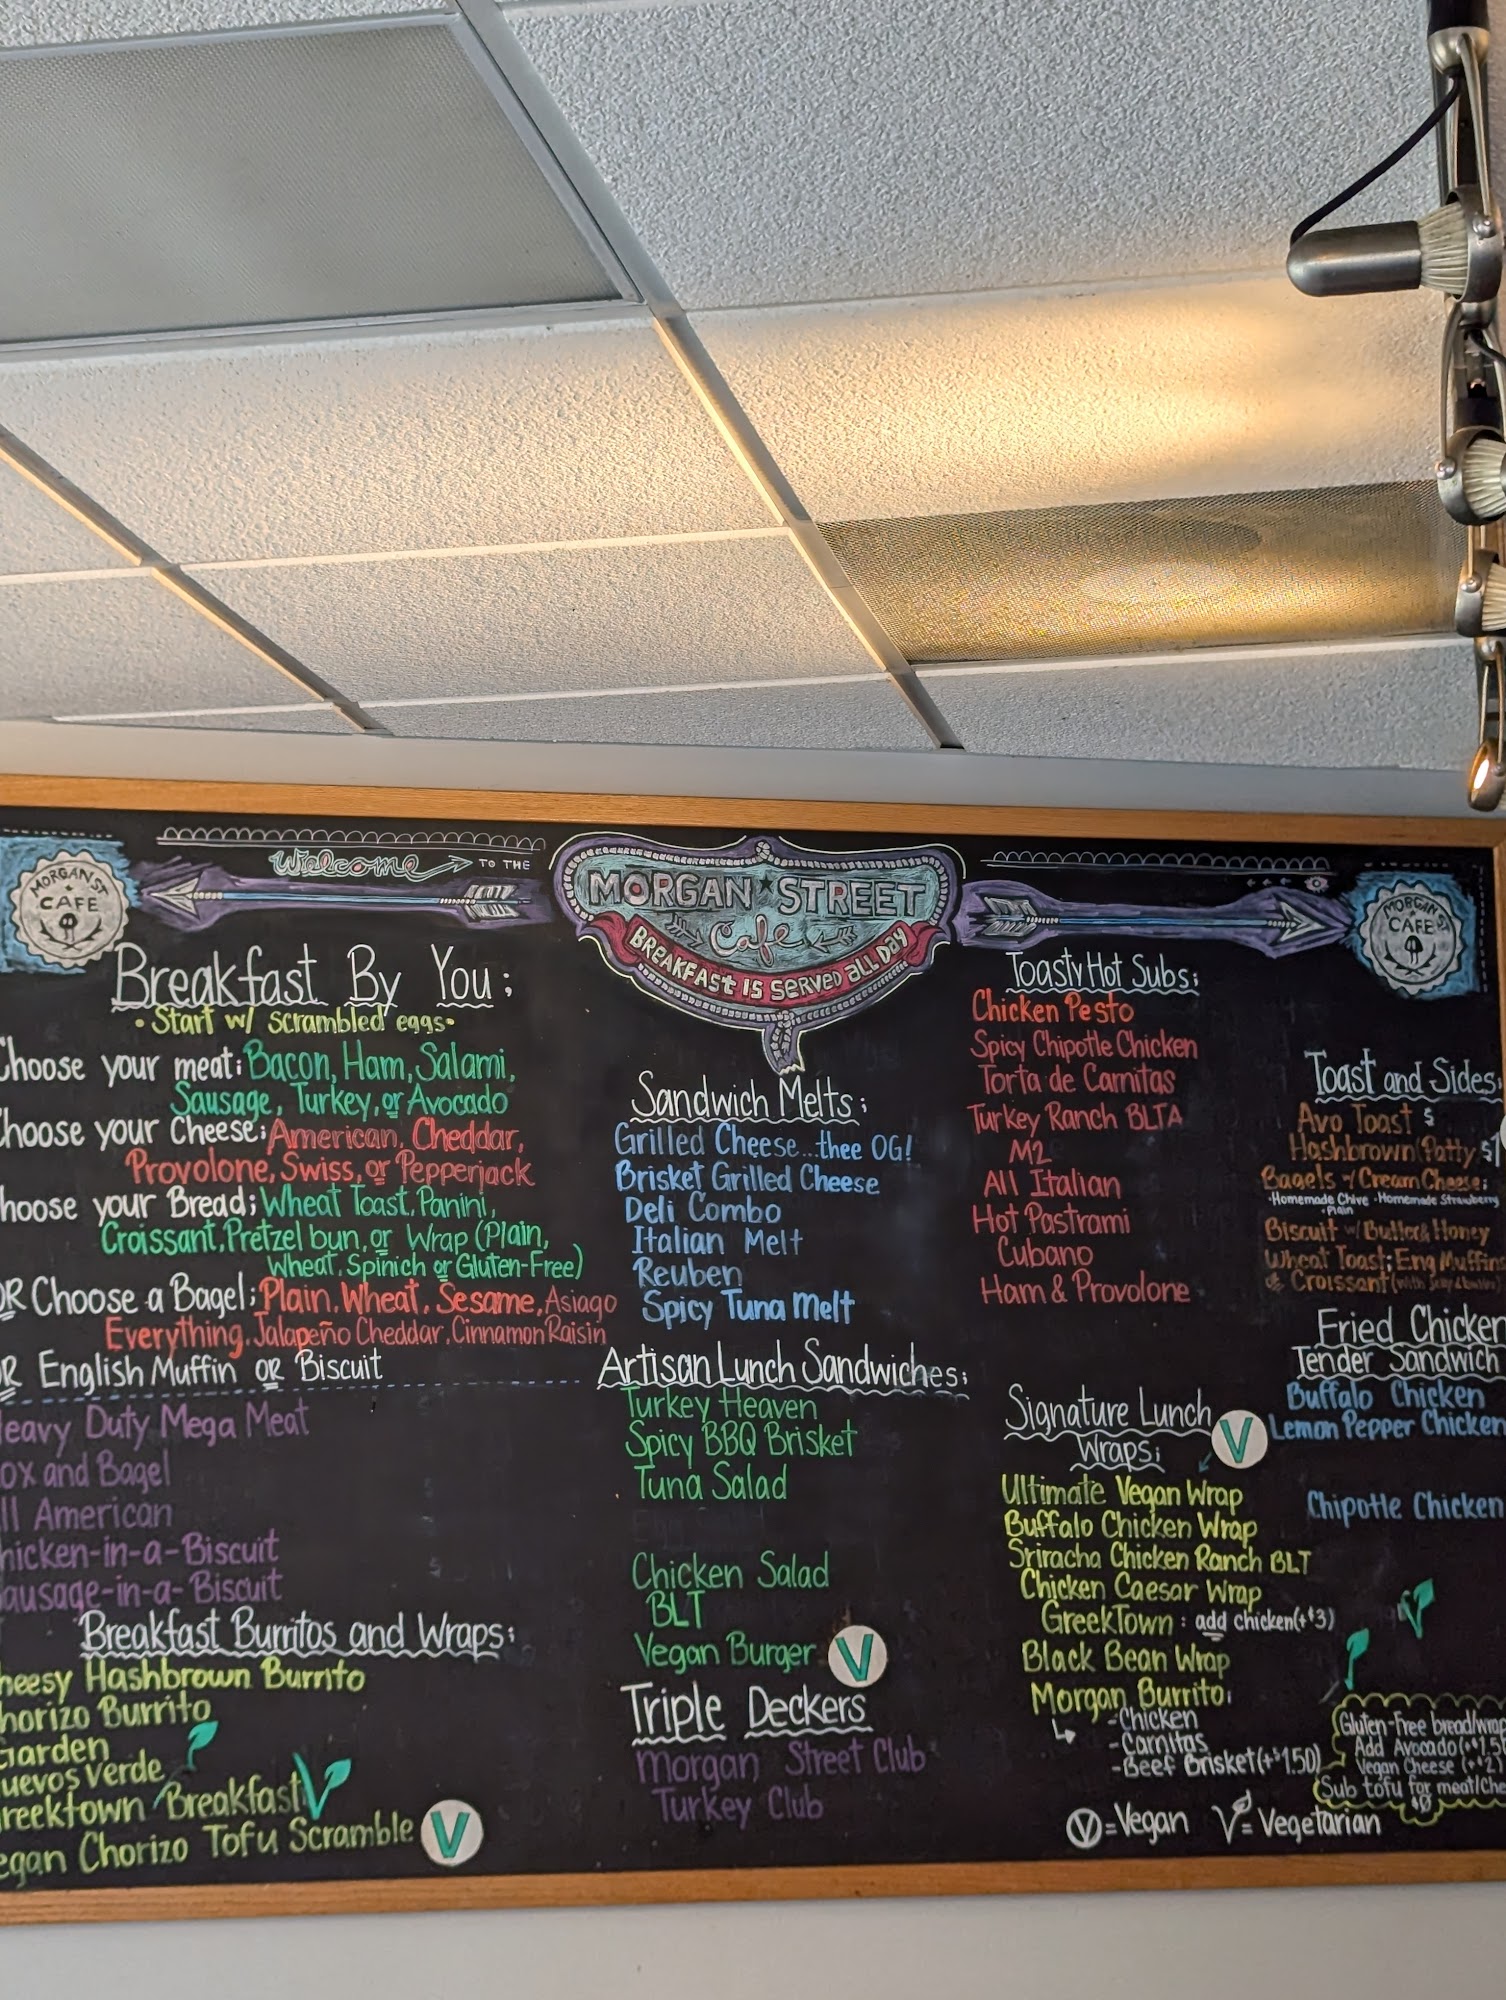 MORGAN ST
CAFE
Welcome TO THE
MORGAN STREET
Cafe
BREAKFAST IS SERVED ALL DAY
MORGAN ST
CAFE
Breakfast By You:
• Start w/ scrambled eggs•
hoose your meat: Bacon, Ham, Salami,
Sausage, Turkey, or Avocado
hoose your Cheese: American, Cheddar,
Provolone, Swiss, or Pepperjack
hoose your Bread; Wheat Toast, Panini,
Croissant, Pretzel bun, or Wrap (Plain,
Wheat, Spinich or Gluten-Free)
OR Choose a Bagel; Plain, Wheat, Sesame, Asiago
Everything, Jalapeño Cheddar, Cinnamon Raisin
R English Muffin or Biscuit
eavy Duty Mega Meat
ox and Bagel
ll American
hicken-in-a-Biscuit
ausage-in-a-Biscuit
Breakfast Burritos and Wraps:
heesy Hashbrown Burrito
horizo Burrito
arden
uevos Verde
reektown Breakfast V
egan Chorizo Tofu Scramble V
Sandwich Melts:
Grilled Cheese...thee OG!
Brisket Grilled Cheese
Deli Combo
Italian Melt
Reuben
Spicy Tuna Melt
Artisan Lunch Sandwiches:
Turkey Heaven
Spicy BBQ Brisket
Tuna Salad
Chicken Salad
BLT
Vegan Burger V
Triple Deckers
Morgan Street Club
Turkey Club
Toasty Hot Subs:
Chicken Pesto
Spicy Chipotle Chicken
Torta de Carnitas
Turkey Ranch BLTA
M2
All Italian
Hot Pastrami
Cubano
Ham & Provolone
Signature Lunch
Wraps: V
Ultimate Vegan Wrap
Buffalo Chicken Wrap
Sriracha Chicken Ranch BLT
Chicken Caesar Wrap
GreekTown: add chicken(+$3)
Black Bean Wrap
Morgan Burrito:
-Chicken
-Carnitas
-Beef Brisket(+$1.50)
V=Vegan V=Vegetarian
Toast and Sides:
Avo Toast $
Hashbrown Patty $1
Bagels w/ Cream Cheese:
•Homemade Chive •Homemade Strawberry
•Plain
Biscuit w/ Butter & Honey
Wheat Toast; Eng Muffins
or Croissant
Fried Chicken
Tender Sandwich
Buffalo Chicken
Lemon Pepper Chicken
Chipotle Chicken
V
Gluten-Free bread/wrap
Add Avocado(+$1.5
Vegan Cheese (+$2
Sub tofu for meat/che
$0